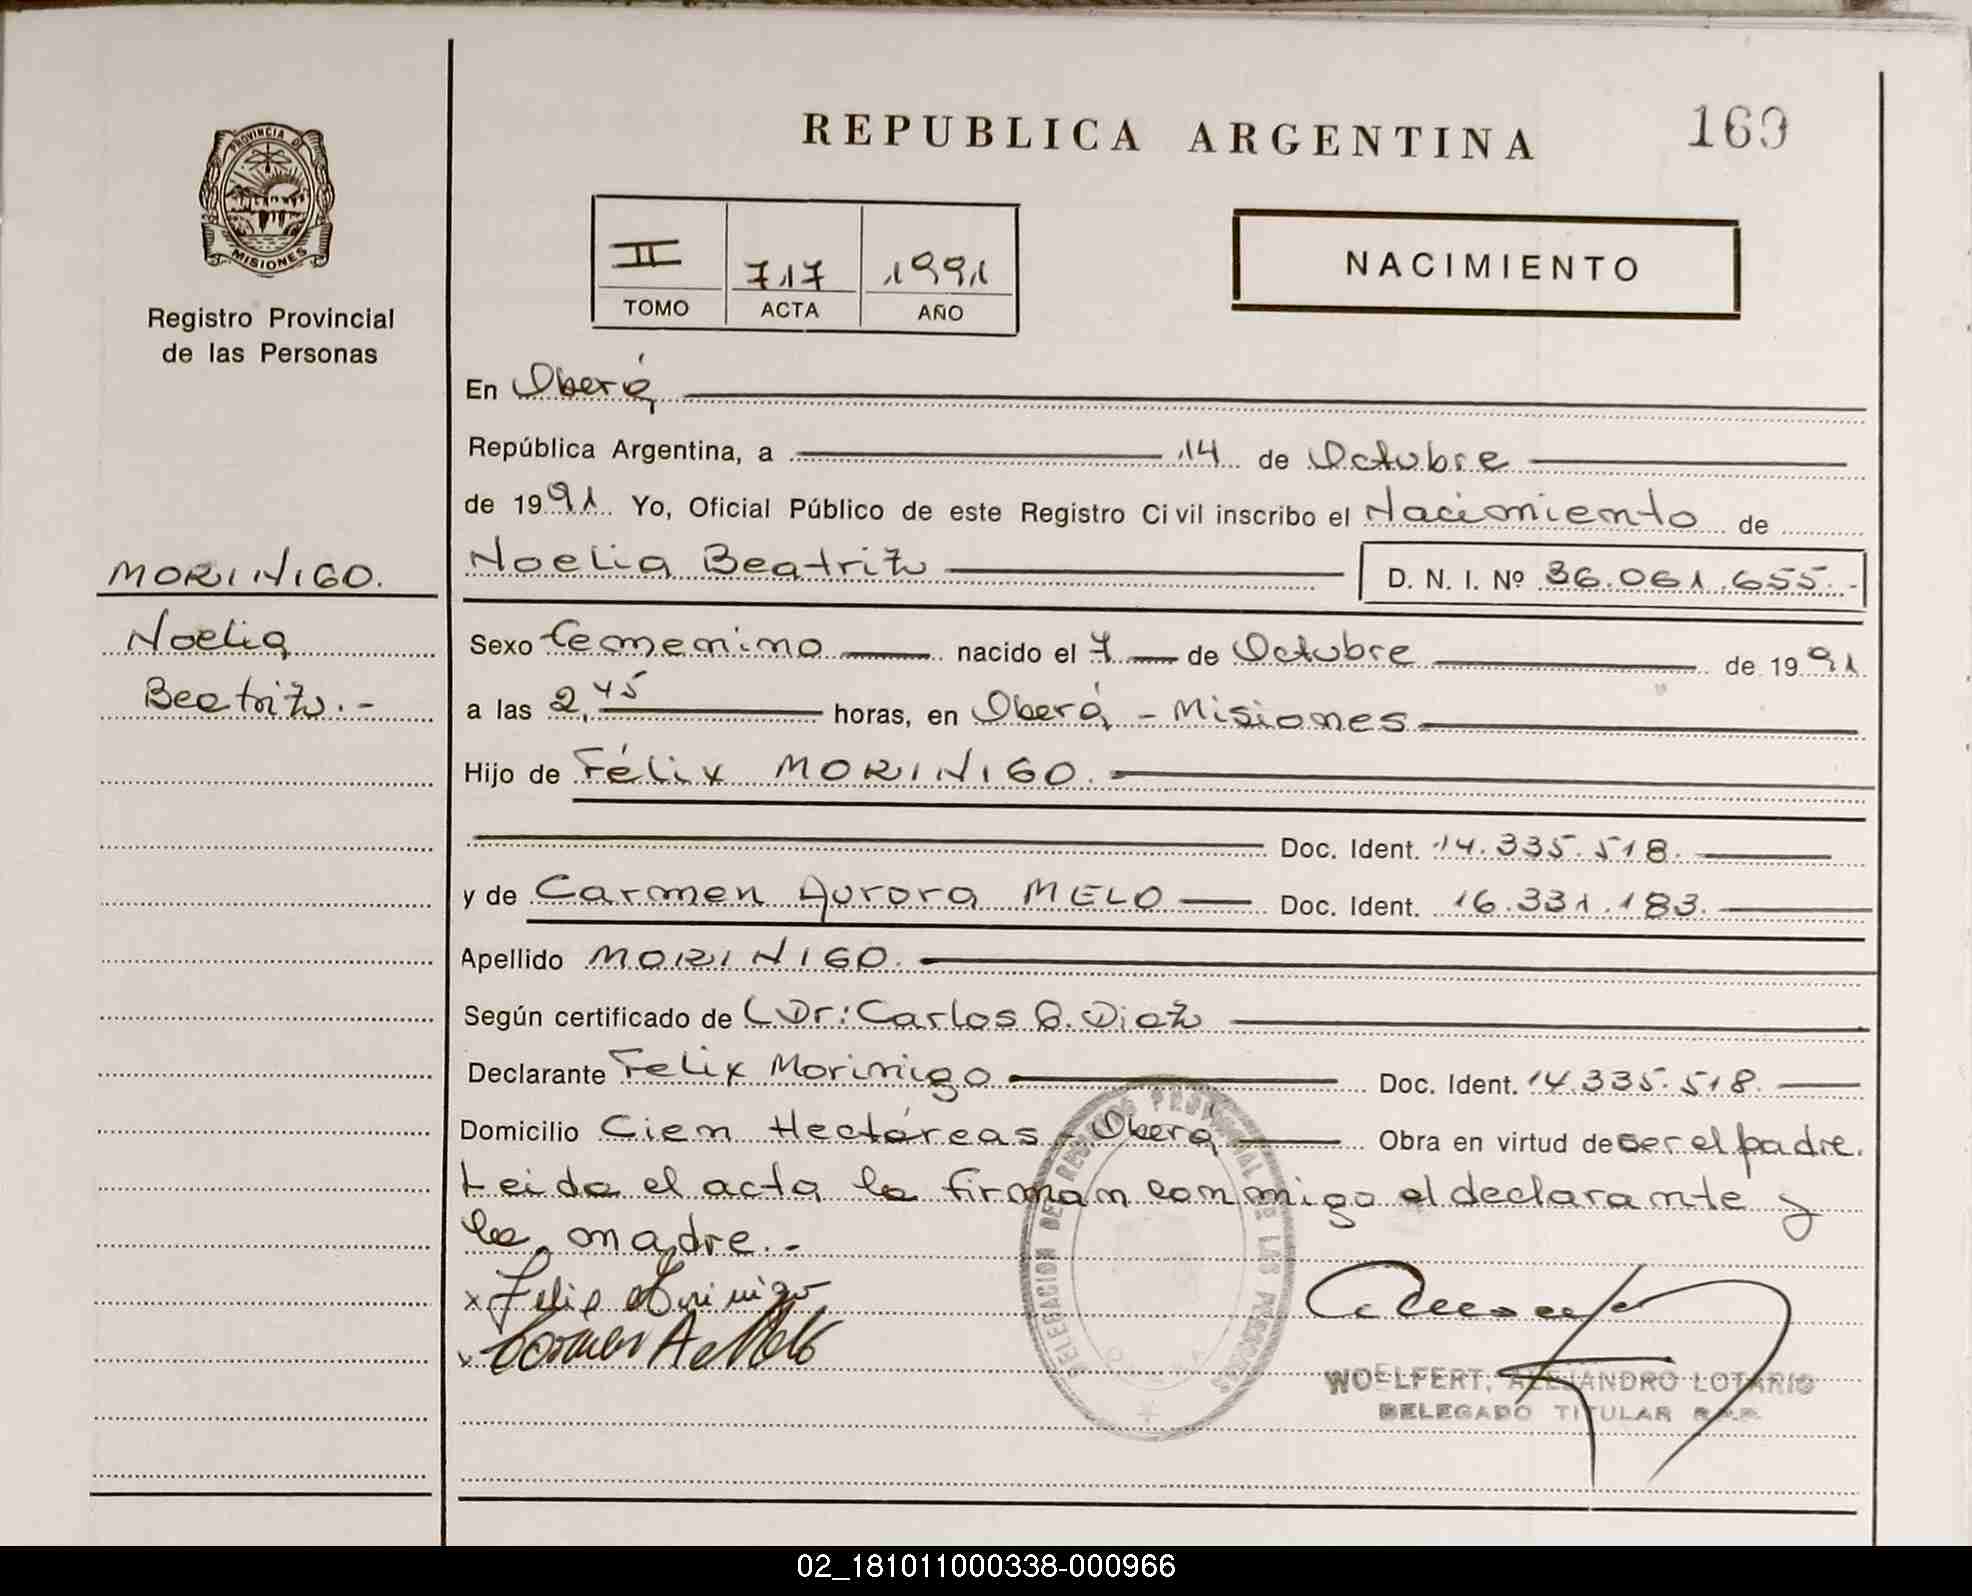 REPUBLICA ARGENTINA
169
PROVINCIA DE
MISIONES
Registro Provincial
de las Personas
II 717 1991
TOMO ACTA AÑO
NACIMIENTO
En Oberá
República Argentina, a 14 de Octubre
de 1991 Yo, Oficial Público de este Registro Civil inscribo el Nacimiento de
MORINIGO.
Noelia Beatriz D. N. I. Nº 36.061.655.-
Noelia
Sexo femenino nacido el 7 de Octubre de 1991
Beatriz.-
a las 2,45 horas, en Oberá - Misiones
Hijo de Félix MORINIGO.
Doc. Ident. 14.335.518.
y de Carmen Aurora MELO Doc. Ident. 16.331.183.
Apellido MORINIGO.
Según certificado de Dr: Carlos Diaz
Declarante Felix Morinigo Doc. Ident. 14.335.518.
Domicilio Cien Hectáreas - Oberá Obra en virtud de ser el padre.
Leida el acta la firman conmigo el declarante y
la madre.-
x Felix Morinigo
Carmen A. Melo
DELEGACION DEL REGISTRO PROVINCIAL DE LAS PERSONAS
WOELFERT, ALEJANDRO LOTARIO
DELEGADO TITULAR R.P.P.
02_181011000338-000966